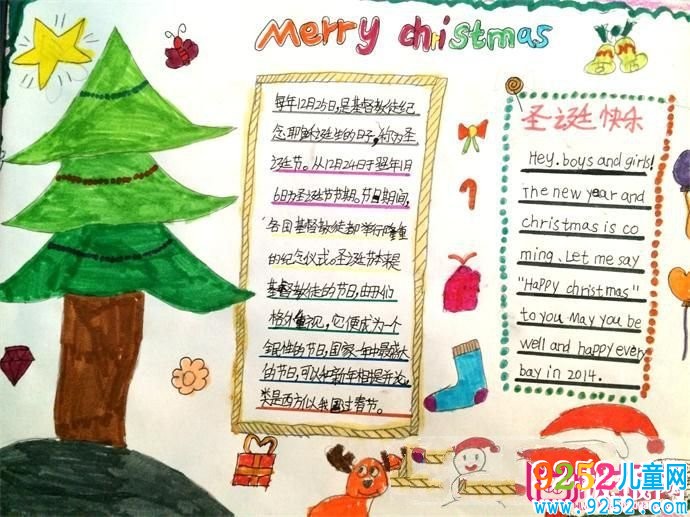 Merry christmas
每年12月25日,是基督教徒纪
念耶稣诞生的日子,称为圣
诞节。从12月24日于翌年1月
6日为圣诞节节期。节日期间,
各国基督教徒都举行隆重
的纪念仪式。圣诞节本来是
基督教徒的节日,由于人们
格外重视,它便成为一个
全民性的节日,国家一年中最盛大
的节日,可以和新年相提并论,
类是西方以我国过春节。
圣诞快乐
Hey. boys and girls!
The new year and
christmas is co
ming. Let me say
"Happy christmas"
to you May you be
well and happy every
bay in 2014.
9252儿童网
www.9252.com